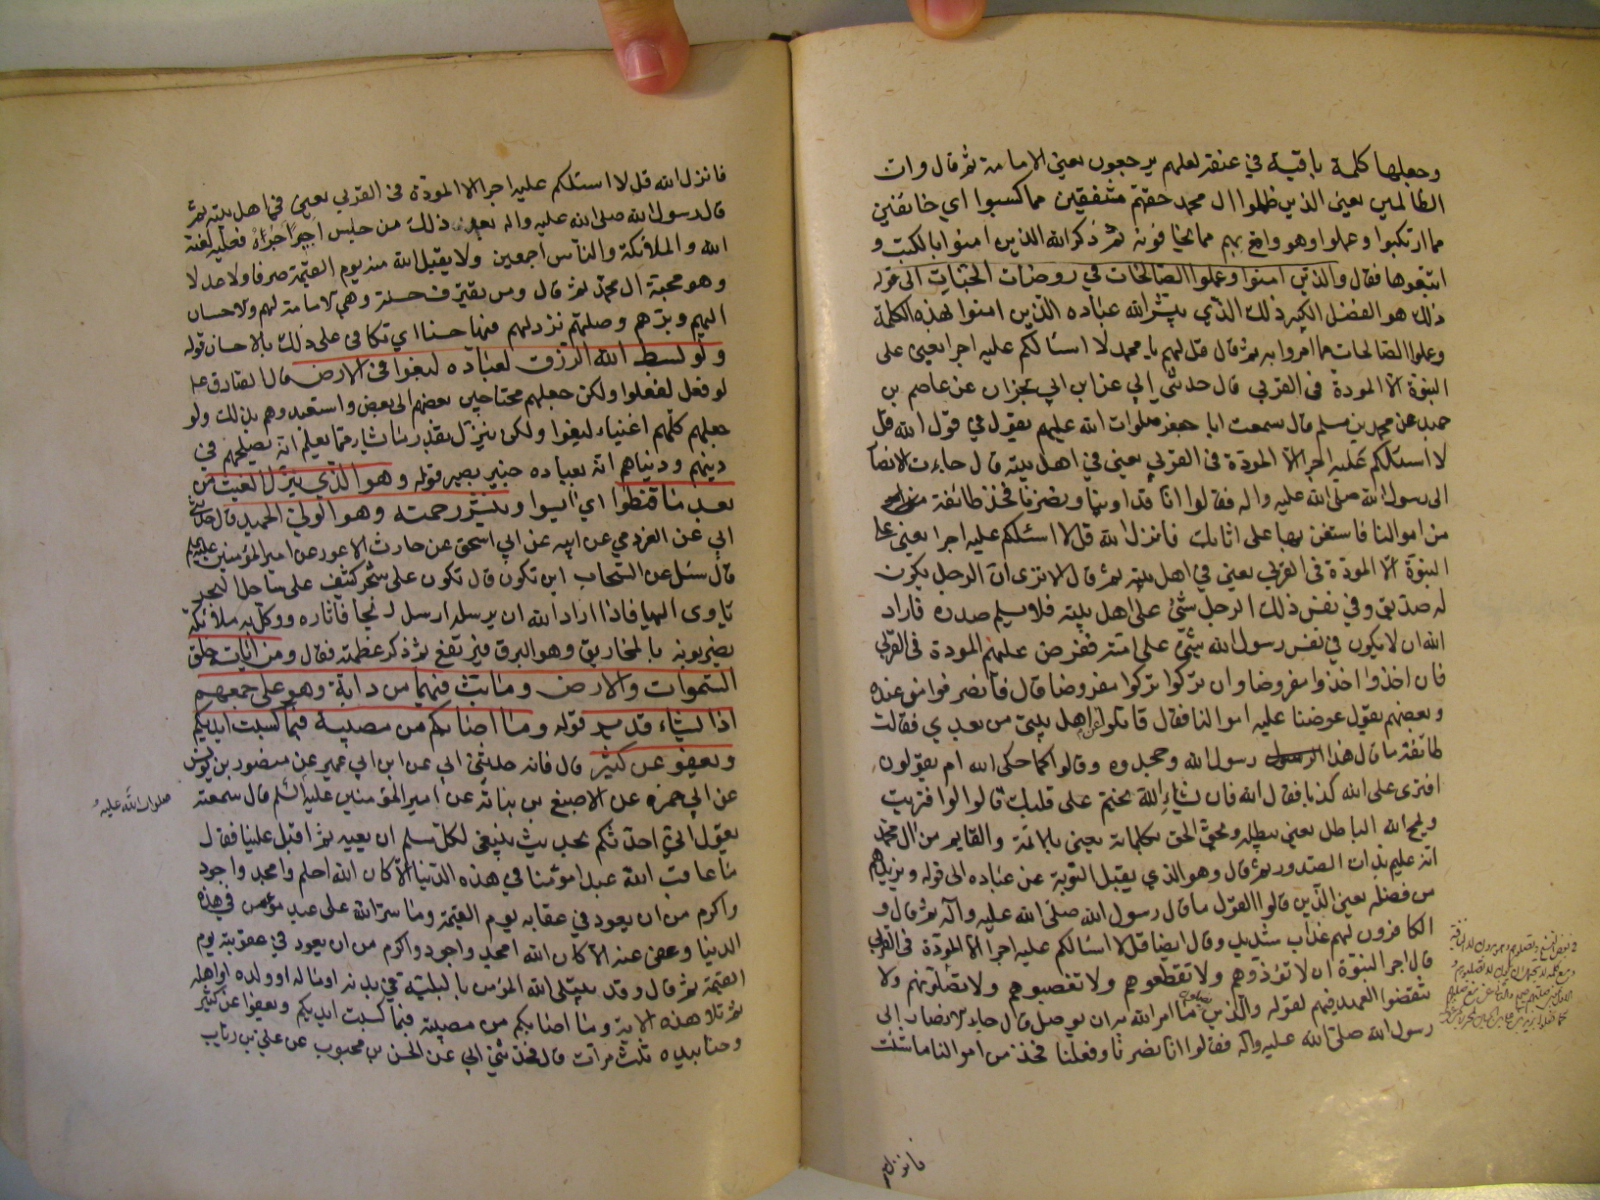 وجعلها كلمة باقية في عقبه لعلهم يرجعون يعني الامامة ثم قال وان
الظالمين يعني الذين ظلموا ال محمد حقهم مشفقين مما كسبوا اي خائفين
مما ارتكبوا وعملوا وهو واقع بهم مما يخافونه ثم ذكر الله الذين امنوا بالكتب و
اتبعوها فقال والذين امنوا وعملوا الصالحات في روضات الجنات الى قوله
ذلك هو الفضل الكبير ذلك الذي يبشر الله عباده الذين امنوا بهذه الكلمة
وعملوا الصالحات مما امروا به ثم قال قل لهم يا محمد لا اسالكم عليه اجرا يعني على
النبوة الا المودة في القربى قال حدثني ابي عن ابن ابي نجران عن عاصم بن
حميد عن محمد بن مسلم قال سمعت ابا جعفر صلوات الله عليهم يقول في قول الله قل
لا اسئلكم عليه اجرا الا المودة في القربى يعني في اهل بيته قال جاءت الانصار
الى رسول الله صلى الله عليه واله فقالوا انا قد اوينا ونصرنا فخذ طائفة
من اموالنا فاستعن بها على ما نابك فانزل الله قل لا اسئلكم عليه اجرا يعني على
النبوة الا المودة في القربى يعني في اهل بيته ثم قال الا ترى ان الرجل يكون
له صديق وفي نفس ذلك الرجل شئ على اهل بيته فلا يسلم صدره فاراد
الله ان لا يكون في نفس رسول الله شئ على امته ففرض عليهم المودة في القربى
فان اخذوا اخذوا مفروضا وان تركوا تركوا مفروضا قال فانصرفوا من عنده
وبعضهم يقول عرضنا عليه اموالنا فقال قاتلوا عن اهل بيتي من بعدي فقالت
طائفة ما قال هذا رسول الله وجحدوه وقالوا كما حكى الله ام يقولون
افترى على الله كذبا فقال الله فان يشاء الله يختم على قلبك قالوا لو افتريت
ويمح الله الباطل يعني يبطله ويحق الحق بكلماته يعني بالائمة والقايم من ال محمد
انه عليم بذات الصدور ثم قال وهو الذي يقبل التوبة عن عباده الى قوله ويزيدهم
من فضله يعني الذين قالوا القول ما قال رسول الله صلى الله عليه وآله ثم قال و
الكافرون لهم عذاب شديد وقال ايضا قل لا اسالكم عليه اجرا الا المودة في القربى
قال اجر النبوة ان لا تؤذوهم ولا تقطعوهم ولا تغصبوهم وتصلونهم ولا
تنقضوا العهد فيهم لقوله والذين يصلون ما امر الله به ان يوصل قال جاء الانصار الى
رسول الله صلى الله عليه واله فقالوا انا نصرنا وفعلنا فخذ من اموالنا ما شئت
فانزل الله
فانزل الله قل لا اسئلكم عليه اجرا الا المودة في القربى يعني في اهل بيته ثم
قال رسول الله صلى الله عليه واله بعد ذلك من حبس اجيرا اجره فعليه لعنة
الله والملائكة والناس اجمعين ولا يقبل الله منه يوم القيمة صرفا ولا عدلا
وهو محبة ال محمد ثم قال ومن يقترف حسنة وهي الامامة لهم والاحسان
اليهم وبرهم وصلتهم نزد لهم فيها حسنا اي نكافي على ذلك بالاحسان قوله
ولو بسط الله الرزق لعباده لبغوا في الارض قال الصادق ع
لو فعل لفعلوا ولكن جعلهم محتاجين بعضهم الى بعض واستعبدوهم بذلك ولو
جعلهم كلهم اغنياء لبغوا ولكن ينزل بقدر ما يشاء مما يعلم انه يصلحهم في
دينهم ودنياهم انه بعباده خبير بصير قوله وهو الذي ينزل الغيث من
بعد ما قنطوا اي ايسوا وينشر رحمته وهو الولي الحميد قال حدثني
ابي عن العرزمي عن ابيه عن ابي اسحق عن حارث الاعور عن امير المؤمنين عليه السلم
قال سئل عن السحاب اين تكون قال تكون على شجر كثيف على ساحل البحر
ياوى اليها فاذا اراد الله ان يرسله ارسل ريحا فاثاره ووكل به ملائكة
يضربونه بالمخاريق وهو البرق فيرتفع ثم ذكر عظمته فقال ومن آياته خلق
السموات والارض وما بث فيهما من دابة وهو على جمعهم
اذا يشاء قدير قوله وما اصابكم من مصيبة فبما كسبت ايديكم
ويعفو عن كثير قال فانه حدثني ابي عن ابن ابي عمير عن منصور بن يونس
عن ابي حمزة عن الاصبغ بن نباتة عن امير المؤمنين عليه السلم قال سمعته
صلوات الله عليه
يقول اني احدثكم بحديث ينبغي لكل مسلم ان يعيه ثم اقبل علينا فقال
ما عاقب الله عبدا مؤمنا في هذه الدنيا الا كان الله احلم وامجد واجود
واكرم من ان يعود في عقابه يوم القيمة وما ستر الله على عبد مؤمن في هذه
الدنيا وعفى عنه الا كان الله امجد واجود واكرم من ان يعود في عقوبته يوم
القيمة ثم قال وقد يبتلى الله المؤمن بالبلية في بدنه او ماله او ولده او اهله
ثم تلا هذه الاية وما اصابكم من مصيبة فبما كسبت ايديكم ويعفوا عن كثير
وحثا بيده ثلث مرات قال فحدثني ابي عن الحسن بن محبوب عن علي بن رئاب